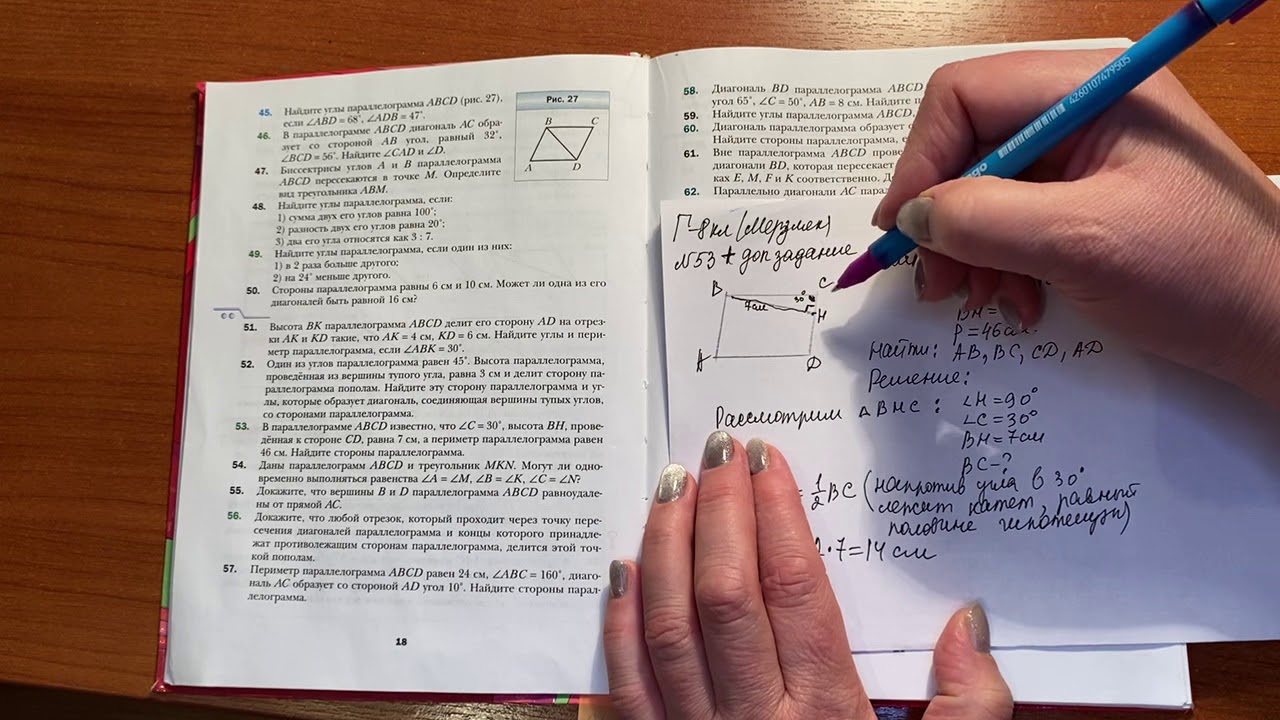 45. Найдите углы параллелограмма ABCD (рис. 27),
если ∠ABD = 68°, ∠ADB = 47°.
46. В параллелограмме ABCD диагональ AC обра-
зует со стороной AB угол, равный 32°,
∠BCD = 56°. Найдите ∠CAD и ∠D.
47. Биссектрисы углов A и B параллелограмма
ABCD пересекаются в точке M. Определите
вид треугольника ABM.
48. Найдите углы параллелограмма, если:
1) сумма двух его углов равна 100°;
2) разность двух его углов равна 20°;
3) два его угла относятся как 3 : 7.
49. Найдите углы параллелограмма, если один из них:
1) в 2 раза больше другого;
2) на 24° меньше другого.
50. Стороны параллелограмма равны 6 см и 10 см. Может ли одна из его
диагоналей быть равной 16 см?
51. Высота BK параллелограмма ABCD делит его сторону AD на отрез-
ки AK и KD такие, что AK = 4 см, KD = 6 см. Найдите углы и пери-
метр параллелограмма, если ∠ABK = 30°.
52. Один из углов параллелограмма равен 45°. Высота параллелограмма,
проведённая из вершины тупого угла, равна 3 см и делит сторону па-
раллелограмма пополам. Найдите эту сторону параллелограмма и уг-
лы, которые образует диагональ, соединяющая вершины тупых углов,
со сторонами параллелограмма.
53. В параллелограмме ABCD известно, что ∠C = 30°, высота BH, прове-
дённая к стороне CD, равна 7 см, а периметр параллелограмма равен
46 см. Найдите стороны параллелограмма.
54. Даны параллелограмм ABCD и треугольник MKN. Могут ли одно-
временно выполняться равенства ∠A = ∠M, ∠B = ∠K, ∠C = ∠N?
55. Докажите, что вершины B и D параллелограмма ABCD равноудале-
ны от прямой AC.
56. Докажите, что любой отрезок, который проходит через точку пере-
сечения диагоналей параллелограмма и концы которого принадле-
жат противолежащим сторонам параллелограмма, делится этой точ-
кой пополам.
57. Периметр параллелограмма ABCD равен 24 см, ∠ABC = 160°, диаго-
наль AC образует со стороной AD угол 10°. Найдите стороны парал-
лелограмма.
18
Рис. 27
B C
A D
58. Диагональ BD параллелограмма ABCD
угол 65°, ∠C = 50°, AB = 8 см. Найдите
59. Найдите углы параллелограмма ABCD,
60. Диагональ параллелограмма образует с
Найдите стороны параллелограмма,
61. Вне параллелограмма ABCD
диагонали BD, которая пересекает
ках E, M, F и K соответственно.
62. Параллельно диагонали AC
Г-8кл (Мерзляк)
№53 + доп задание
B C
30°
7см
H
A D
BH =
P = 46см.
Найти: AB, BC, CD, AD
Решение:
Рассмотрим △BHC: ∠H = 90°
∠C = 30°
BH = 7см
BC - ?
= 1/2 BC (напротив угла в 30°
лежит катет, равный
половине гипотенузы)
2·7 = 14 см
4260107479505